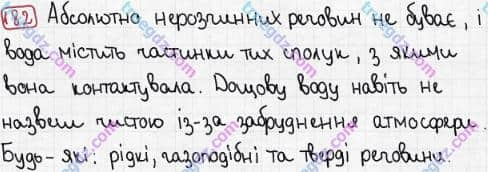 182 Абсолютно нерозчинних речовин не буває, і
вода містить частинки тих сполук, з якими
вона контактувала. Дощову воду навіть не
назвеш чистою із-за забруднення атмосфери.
Будь-які: рідкі, газоподібні та тверді речовини.